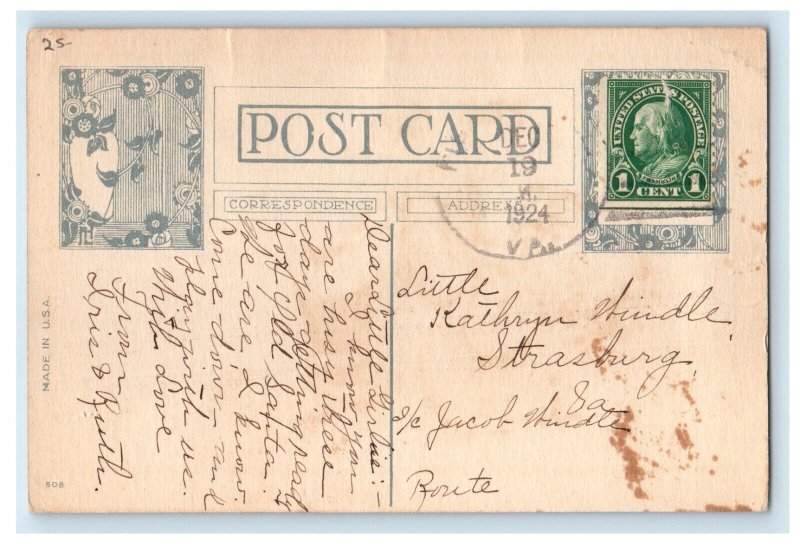 25-
POST CARD
CORRESPONDENCE
ADDRESS
DEC
19
1924
UNITED STATES POSTAGE
FRANKLIN
1 CENT 1
Dear Little Girlie:-
I know you
are busy these
days getting ready
for Old Santa.
We are I know.
Come down and
play with us.
With Love
From
Iris & Ruth.
Little
Kathryn Windle
Strasburg
Pa
c/o Jacob Windle
Route
MADE IN U.S.A.
508